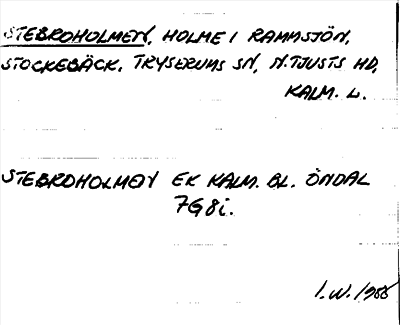 STEBROHOLMEN, HOLME I RAMMSJÖN,
STOCKEBÄCK, TRYSERUMS SN, N. TJUSTS HD,
KALM. L.
STEBROHOLMEN EK KALM. BL. ÖNDAL
7G8i.
I.W. 1988